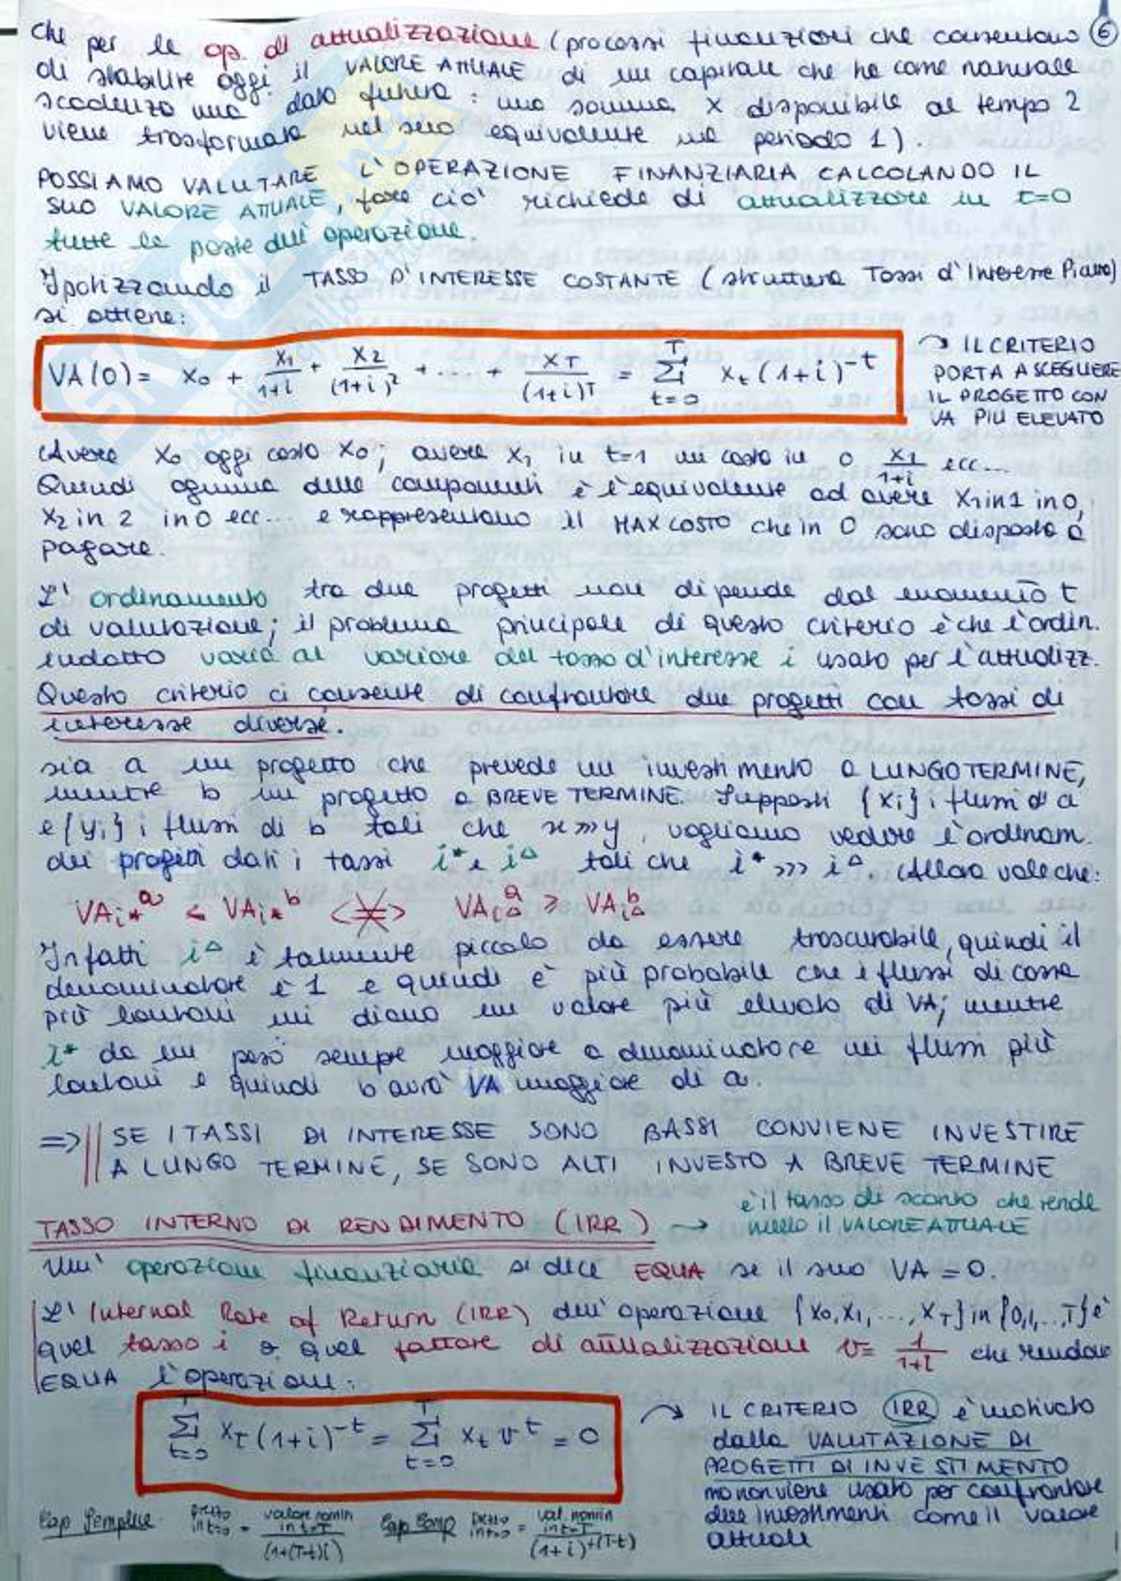 che per le op. di attualizzazione (processi finanziari che consentono ⑥
di stabilire oggi il VALORE ATTUALE di un capitale che ha come naturale
scadenza una data futura : una somma X disponibile al tempo 2
viene trasformata nel suo equivalente nel periodo 1).
POSSIAMO VALUTARE L'OPERAZIONE FINANZIARIA CALCOLANDO IL
SUO VALORE ATTUALE, fare ciò richiede di attualizzare in t=0
tutte le poste dell'operazione.
Ipotizzando il TASSO D'INTERESSE COSTANTE (struttura Tassi d'Interesse Piatta)
si ottiene:
VA(0) = x₀ + x₁/(1+i) + x₂/(1+i)² + .... + x_T/(1+i)^T = Σ_{t=0}^{T} x_t (1+i)^{-t}
→ IL CRITERIO
PORTA A SCEGLIERE
IL PROGETTO CON
VA PIÙ ELEVATO
Avere x₀ oggi costa x₀; avere x₁ in t=1 mi costa in 0 x₁/(1+i) ecc...
Quindi ognuna delle componenti è l'equivalente ad avere x₁ in 1 in 0,
x₂ in 2 in 0 ecc... e rappresentano il MAX COSTO che in 0 sono disposto a
pagare.
L'ordinamento tra due progetti non dipende dal momento t
di valutazione; il problema principale di questo criterio è che l'ordin.
indotto varia al variare del tasso d'interesse i usato per l'attualizz.
Questo criterio ci consente di confrontare due progetti con tassi di
interesse diversi.
sia a un progetto che prevede un investimento a LUNGO TERMINE,
mentre b un progetto a BREVE TERMINE. Supposti {xi} i flussi di a
e {yi} i flussi di b tali che x>>>y, vogliamo vedere l'ordinam.
dei progetti dati i tassi i* e i^Δ tali che i* >>> i^Δ. Allora vale che:
VA_{i*}^a < VA_{i*}^b <≠> VA_{i^Δ}^a > VA_{i^Δ}^b
Infatti i^Δ è talmente piccolo da essere trascurabile, quindi il
denominatore è 1 e quindi è più probabile che i flussi di cassa
più lontani mi diano un valore più elevato di VA; mentre
i* da un peso sempre maggiore a denominatore nei flussi più
lontani e quindi b avrà VA maggiore di a.
=> SE I TASSI DI INTERESSE SONO BASSI CONVIENE INVESTIRE
A LUNGO TERMINE, SE SONO ALTI INVESTO A BREVE TERMINE
TASSO INTERNO DI RENDIMENTO (IRR) → è il tasso di sconto che rende
nullo il VALORE ATTUALE
Un'operazione finanziaria si dice EQUA se il suo VA = 0.
L'Internal Rate of Return (IRR) dell'operazione {x₀,x₁,...,x_T} in {0,1,..,T} è
quel tasso i o quel fattore di attualizzazione v = 1/(1+i) che rendono
EQUA l'operazione:
Σ_{t=0}^{T} x_t (1+i)^{-t} = Σ_{t=0}^{T} x_t v^t = 0
→ IL CRITERIO IRR è motivato
dalla VALUTAZIONE DI
PROGETTI DI INVESTIMENTO
ma non viene usato per confrontare
due investimenti come il valore
attuale
Cap Semplice prezzo in t=0 = valore nomin in t=T/(1+(T-t)i) Cap Comp prezzo in t=0 = val nomin in t=T/(1+i)^{+(T-t)}